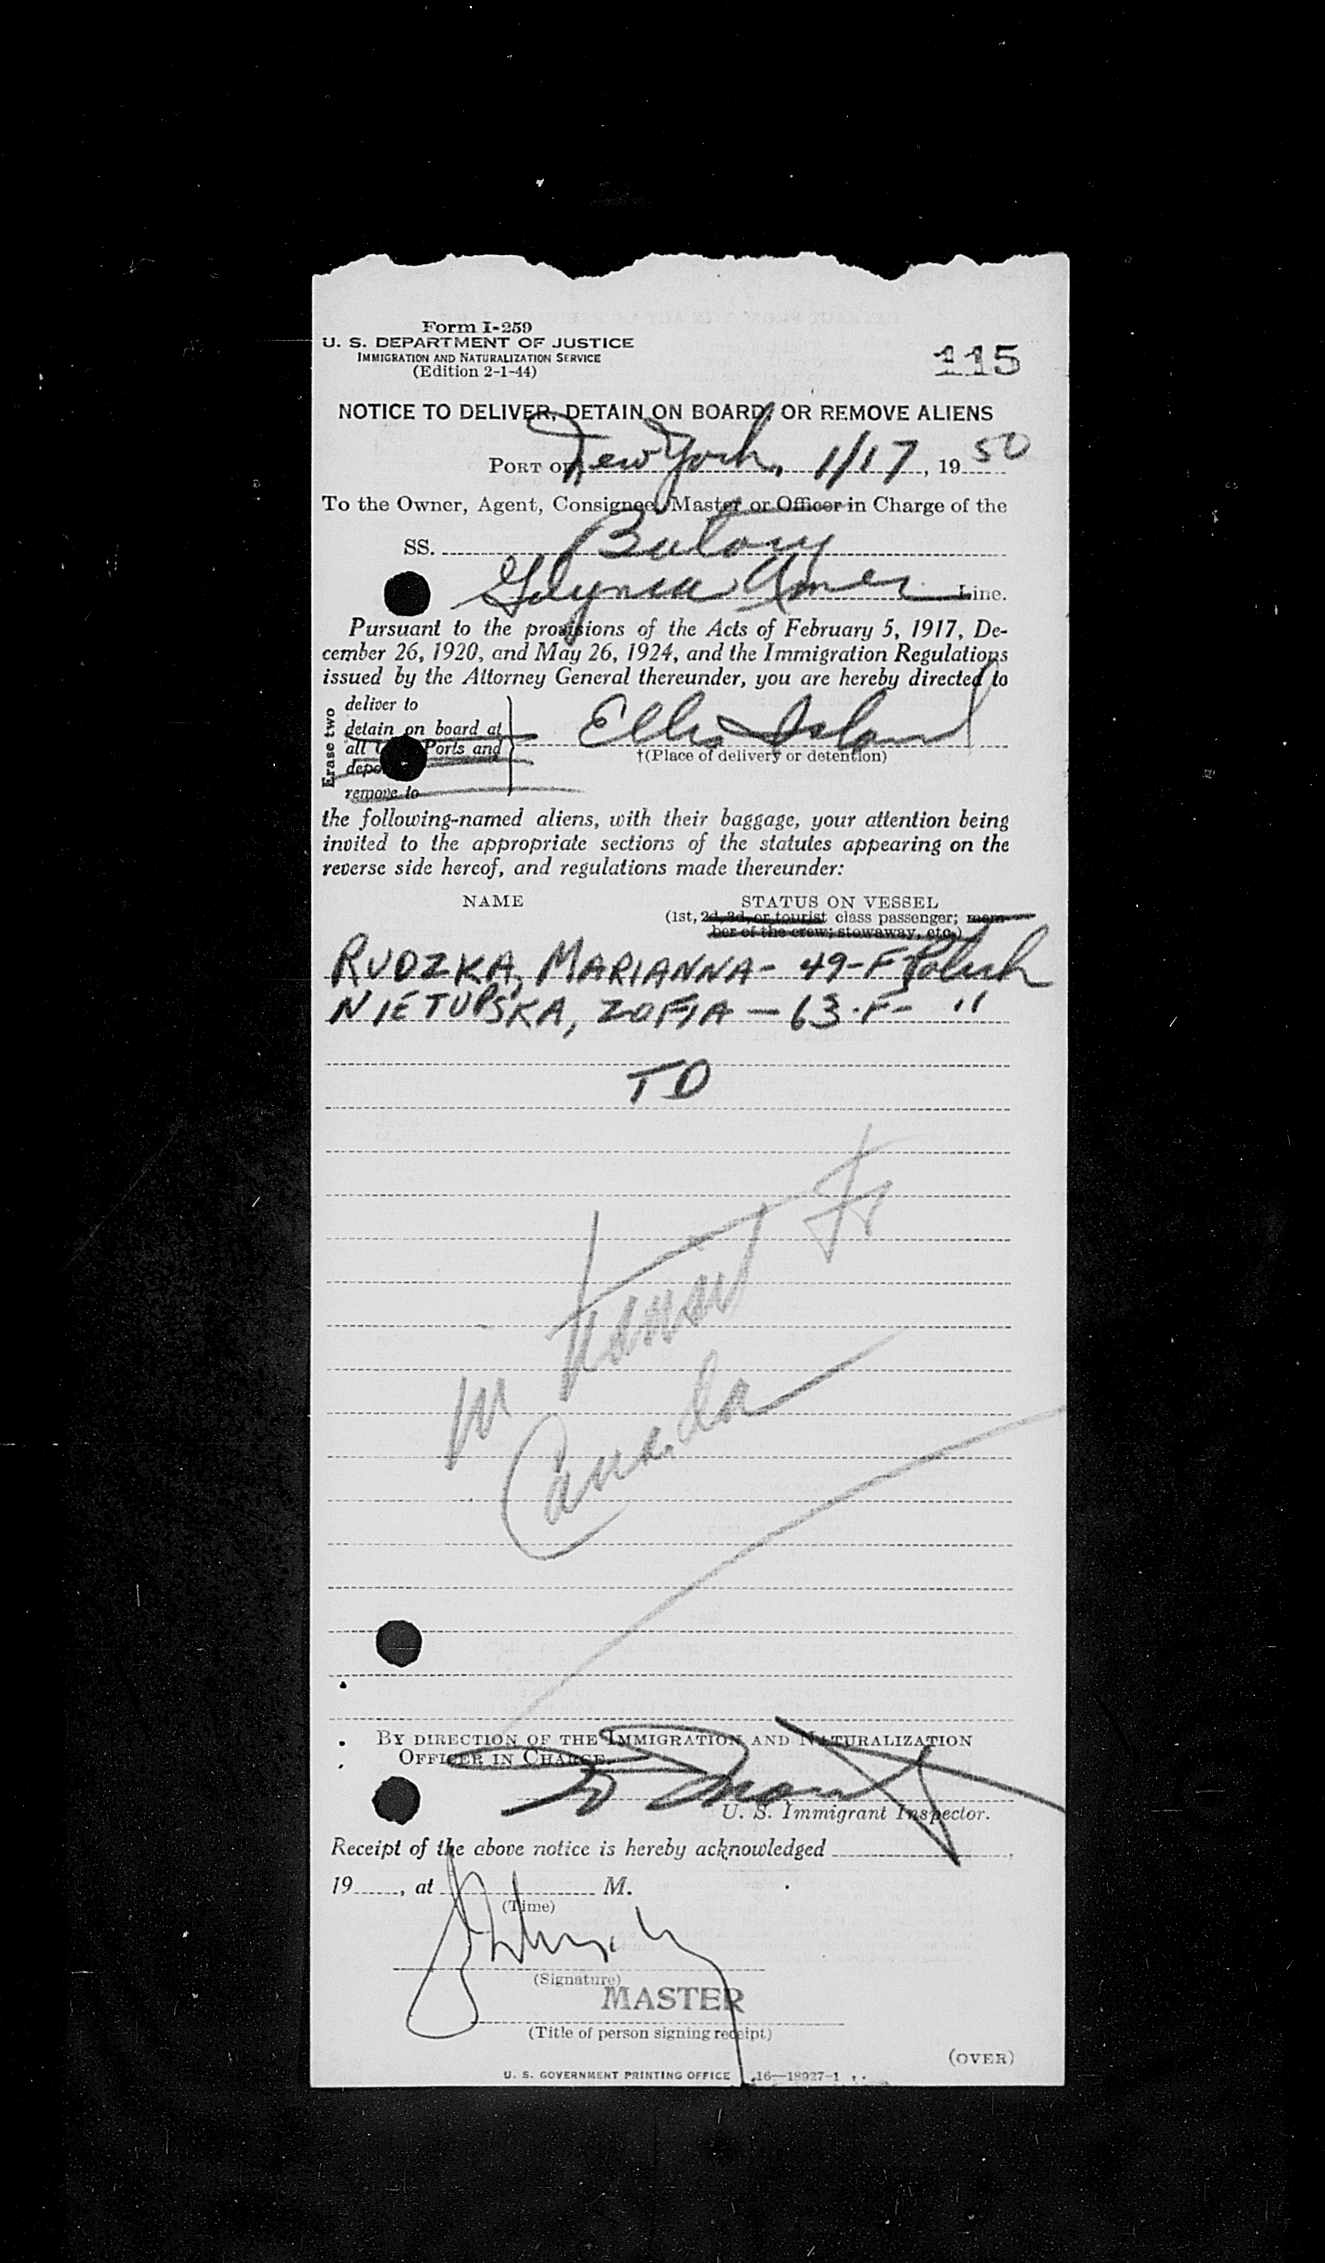 Form I-259
U. S. DEPARTMENT OF JUSTICE
IMMIGRATION AND NATURALIZATION SERVICE
(Edition 2-1-44)
115
NOTICE TO DELIVER, DETAIN ON BOARD, OR REMOVE ALIENS
PORT OF New York, 1/17, 1950
To the Owner, Agent, Consignee, Master or Officer in Charge of the
SS. Batory
Gdynia Amer Line.
Pursuant to the provisions of the Acts of February 5, 1917, De-
cember 26, 1920, and May 26, 1924, and the Immigration Regulations
issued by the Attorney General thereunder, you are hereby directed to
Erase two
deliver to
detain on board at
all Ports and
remove to
Ellis Island
†(Place of delivery or detention)
the following-named aliens, with their baggage, your attention being
invited to the appropriate sections of the statutes appearing on the
reverse side hereof, and regulations made thereunder:
NAME STATUS ON VESSEL
(1st, 2d, 3d, or tourist class passenger; mem-
ber of the crew; stowaway, etc.)
RUDZKA, MARIANNA - 49-F Polish
NIETUPSKA, ZOFIA - 63-F- "
TD
in transit to
Canada
BY DIRECTION OF THE IMMIGRATION AND NATURALIZATION
OFFICER IN CHARGE.
U. S. Immigrant Inspector.
Receipt of the above notice is hereby acknowledged
19 , at M.
(Time)
(Signature)
MASTER
(Title of person signing receipt)
(OVER)
U. S. GOVERNMENT PRINTING OFFICE 16—18927-1